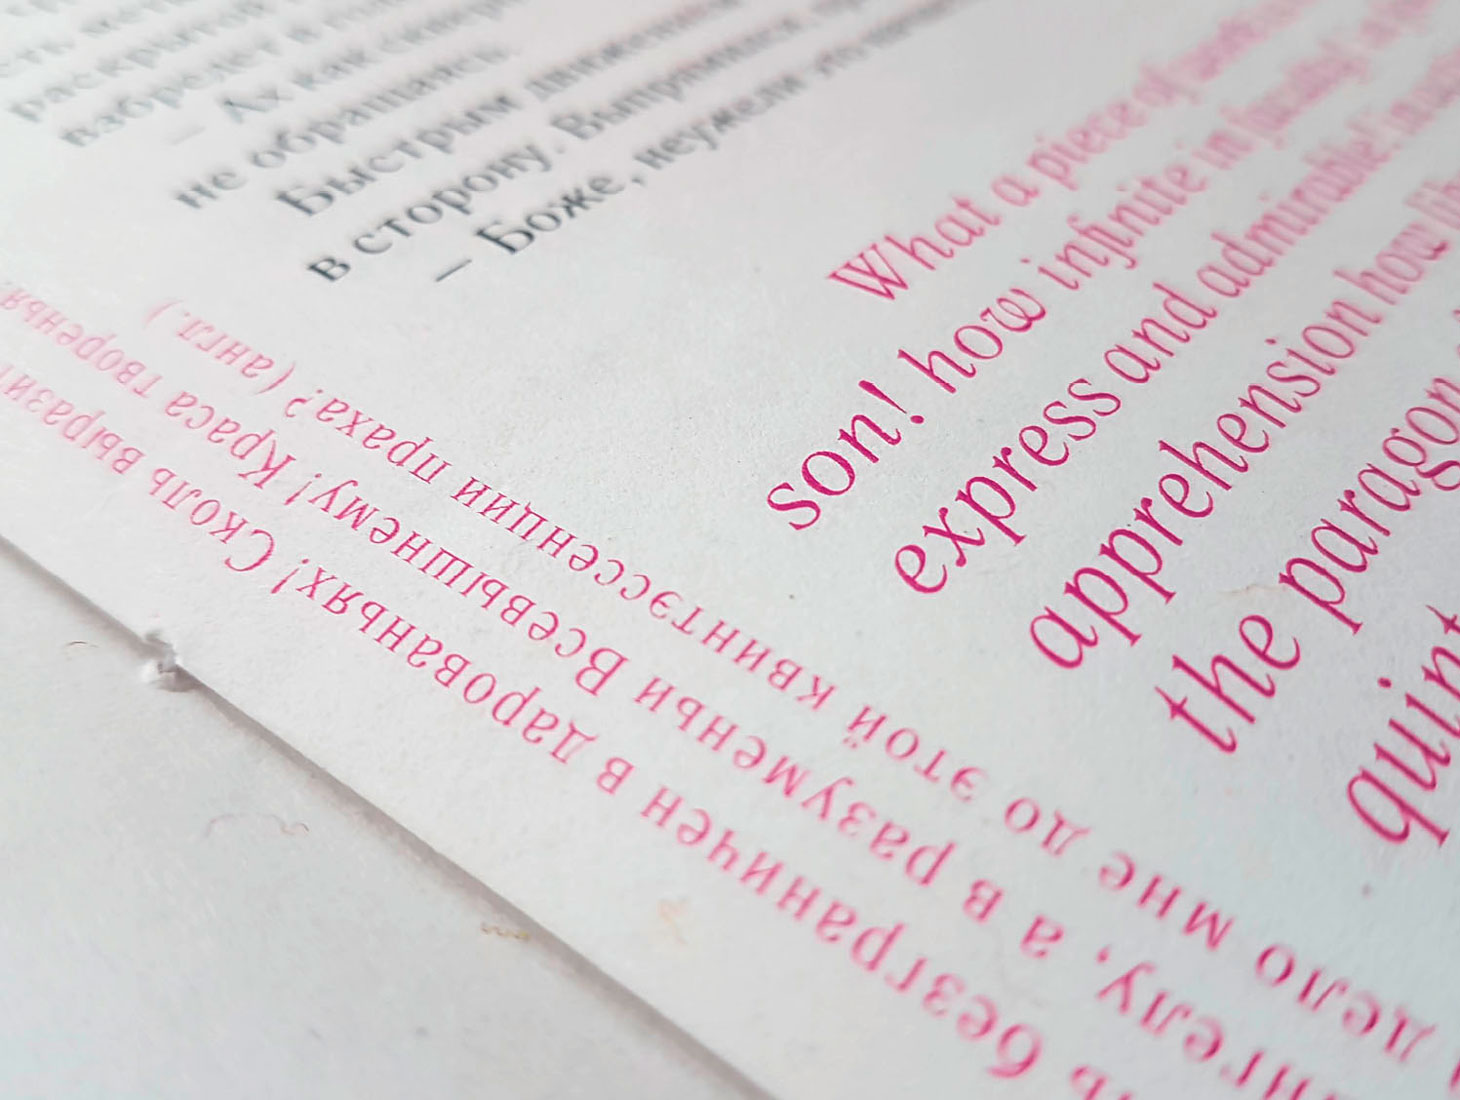 раскрытой
взбредет в
— Ах как
не обращаясь.
Быстрым движением
в сторону. Выпрямился,
— Боже, неужели это
What a piece of
son! how infinite in faculty!
express and admirable! in
apprehension how
the paragon
quint
ь безграничен в дарованьях! Сколь вырази
нгелу, а в разуменьи Всевышнему! Краса творенья.
дело мне до этой квинтэссенции праха? (англ.)